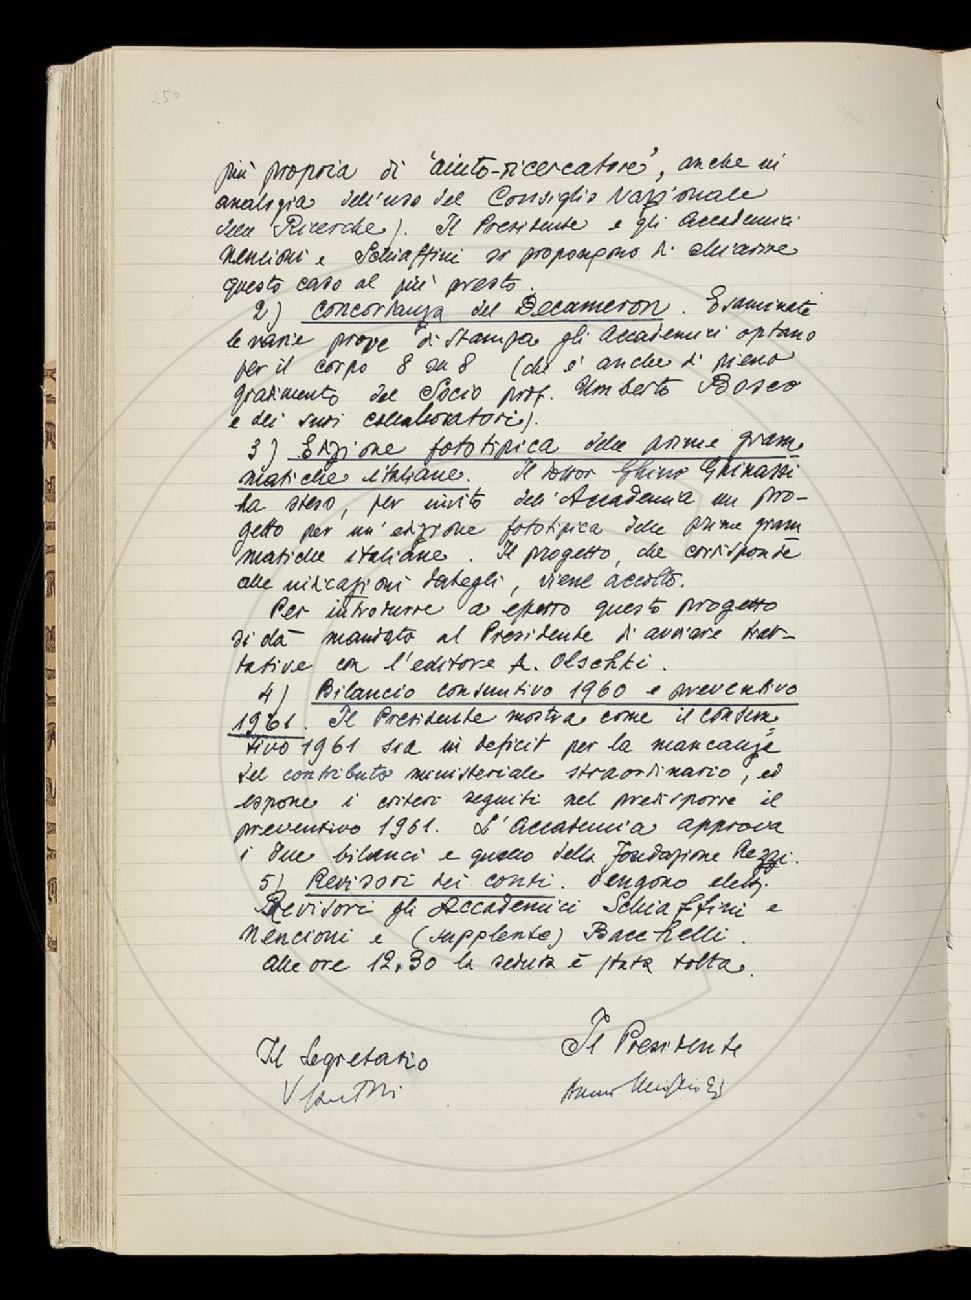 250
più propria di "aiuto-ricercatore", anche in
analogia dell'uso del Consiglio Nazionale
delle Ricerche). Il Presidente e gli Accademici
Nencioni e Schiaffini si propongono di chiarire
questo caso al più presto.
2) Concordanza del Decameron. Esaminate
le varie prove di stampa gli Accademici optano
per il corpo 8 su 8 (che è anche di pieno
gradimento del Socio prof. Umberto Bosco
e dei suoi collaboratori).
3) Edizione fototipica delle prime gram
matiche italiane. Il dottor Ghino Ghinassi
ha steso, per invito dell'Accademia un pro-
getto per un'edizione fototipica delle prime gram
matiche italiane. Il progetto, che corrisponde
alle indicazioni dategli, viene accolto.
Per introdurre a effetto questo progetto
si dà mandato al Presidente di avviare trat-
tative con l'editore A. Olschki.
4) Bilancio consuntivo 1960 e preventivo
1961. Il Presidente mostra come il consun
tivo 1961 sia in deficit per la mancanza
del contributo ministeriale straordinario, ed
espone i criteri seguiti nel predisporre il
preventivo 1961. L'Accademia approva
i due bilanci e quello della Fondazione Rezzi.
5) Revisori dei conti. Vengono eletti
Revisori gli Accademici Schiaffini e
Nencioni e (supplente) Bacchelli.
Alle ore 12.30 la seduta è stata tolta.
Il Segretario
Il Presidente